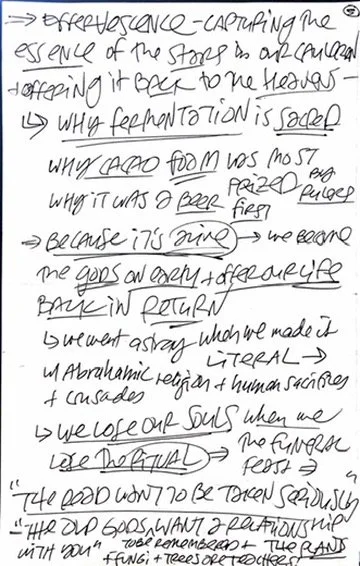 → EFFERVESCENCE - CAPTURING THE
ESSENCE OF THE STARS IN OUR CAULDRON
+ OFFERING IT BACK TO THE HEAVENS -
↳ WHY FERMENTATION IS SACRED
WHY CACAO FOAM WAS MOST
PRIZED BY RULERS
WHY IT WAS A BEER FIRST
→ BECAUSE IT'S ALIVE → WE BECOME
THE GODS ON EARTH + OFFER OUR LIFE
BACK IN RETURN
↳ WE WENT ASTRAY WHEN WE MADE IT
LITERAL →
W/ ABRAHAMIC RELIGION + HUMAN SACRIFICES
+ CRUSADES
↳ WE LOSE OUR SOULS WHEN WE
LOSE THE RITUAL → THE FUNERAL
FEAST →
"THE DEAD WANT TO BE TAKEN SERIOUSLY"
"THE OLD GODS WANT A RELATIONSHIP
WITH YOU" TO BE REMEMBERED + THE PLANTS
+ FUNGI + TREES ARE TEACHERS